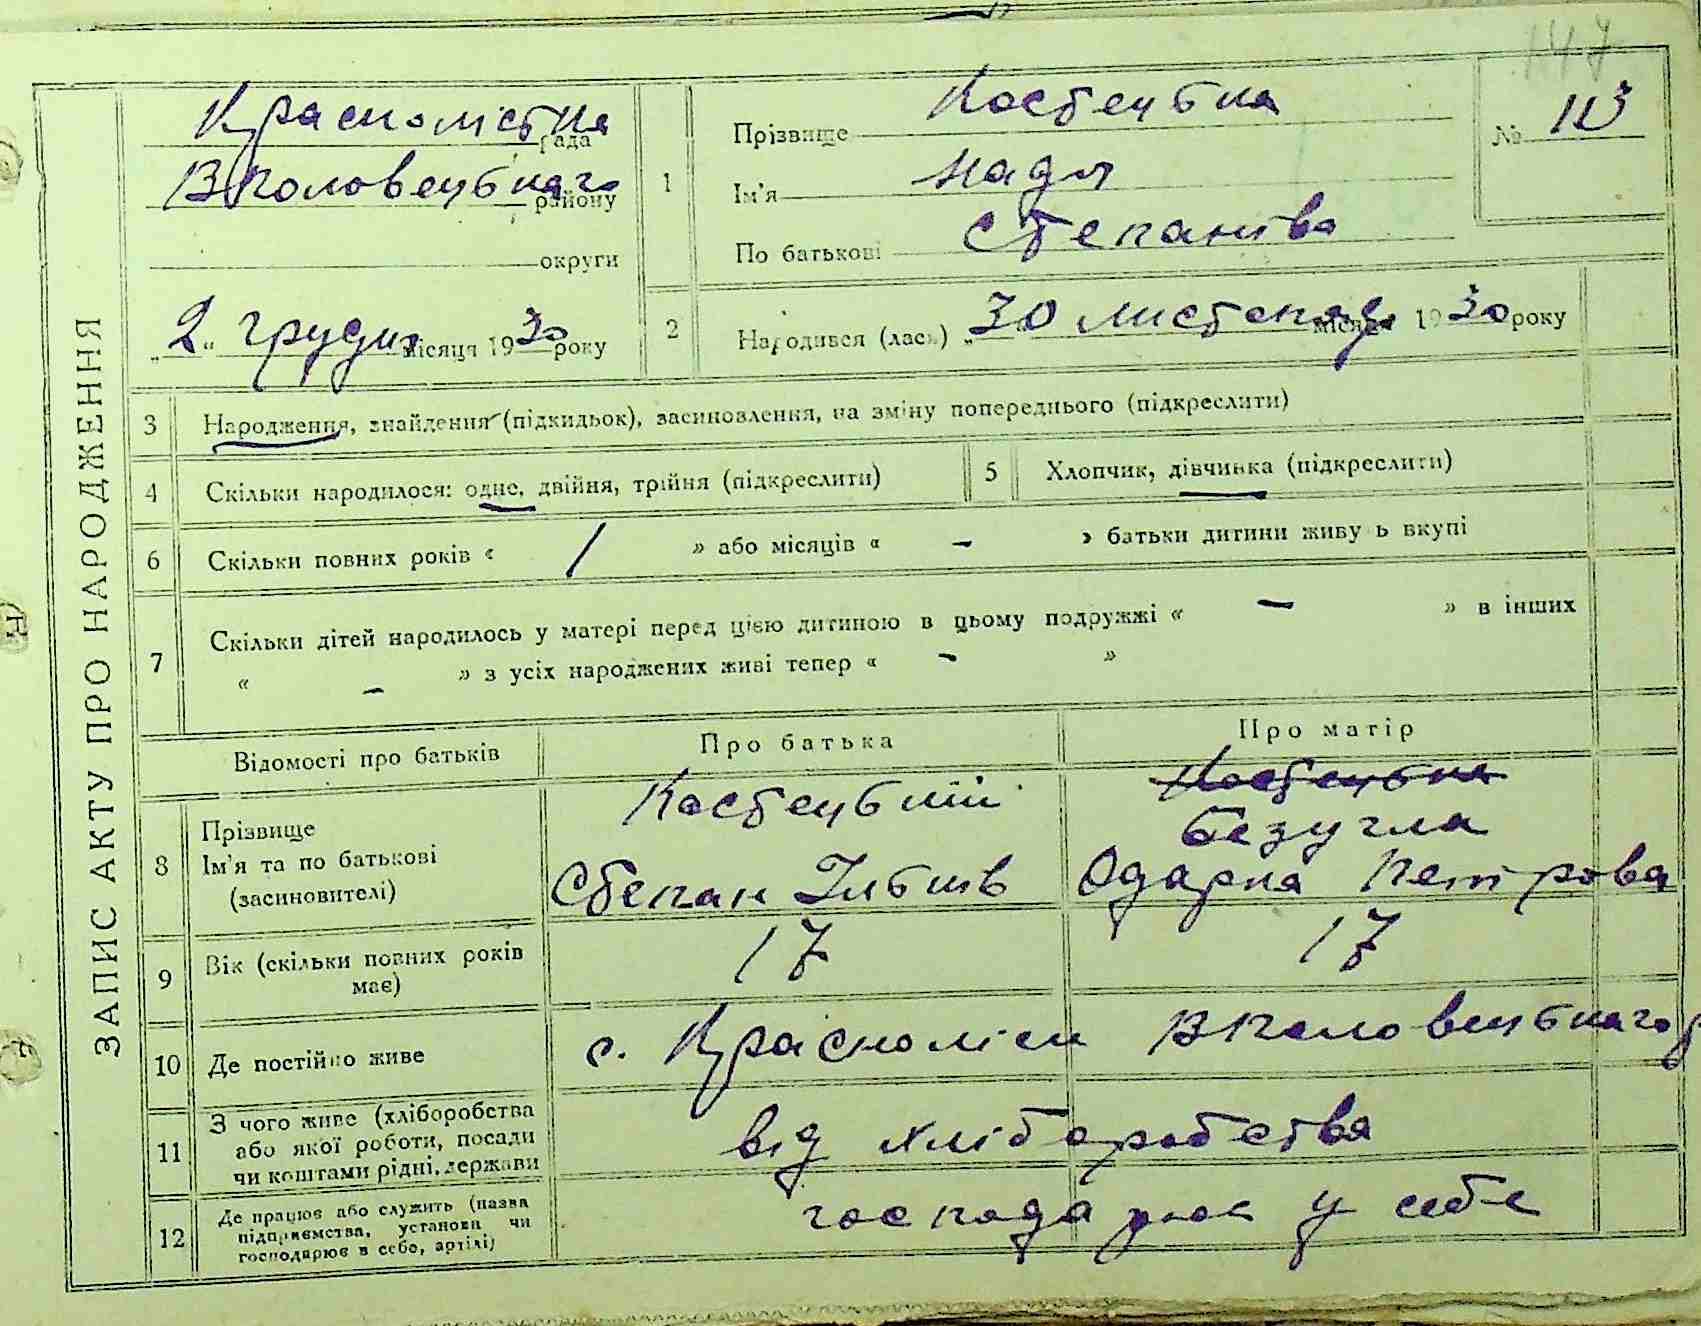 147
ЗАПИС АКТУ ПРО НАРОДЖЕННЯ
Красноліська рада
округи
„2“ грудня місяця 1930 року
1
Прізвище Костецька
Ім'я Надя
По батькові Степанівна
№ 113
2 Народився (лась) „30 листопад місяця 1930 року
3 Народження, знайдення (підкидьок), засиновлення, на зміну попереднього (підкреслити)
4 Скільки народилося: одне, двійня, трійня (підкреслити)
5 Хлопчик, дівчинка (підкреслити)
6 Скільки повних років « 1 » або місяців « - » батьки дитини живуть вкупі
7 Скільки дітей народилось у матері перед цією дитиною в цьому подружжі « - » в інших
« - » з усіх народжених живі тепер « - »
Відомості про батьків
Про батька
Про матір
8
Прізвище
Ім'я та по батькові
(засиновителі)
Костецький
Степан
Костецька
Безугла
Одарка Петрова
9
Вік (скільки повних років
має)
17
17
10 Де постійно живе
с. Красноліси
11
З чого живе (хліборобства
або якої роботи, посади
чи коштами рідні, держави
від хліборобства
12
Де працює або служить (назва
підприємства, установи чи
господарює в себе, артілі)
господарює у себе